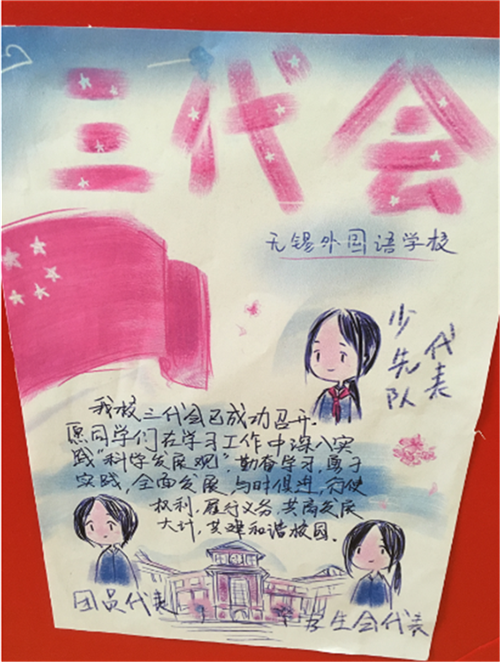 三代会
无锡外国语学校
少先队
代表
我校三代会已成功召开.
愿同学们在学习工作中深入实
践"科学发展观",勤奋学习,勇于
实践,全面发展,与时俱进,行使
权利,履行义务,共商发展
大计,共建和谐校园.
团员代表
学生会代表